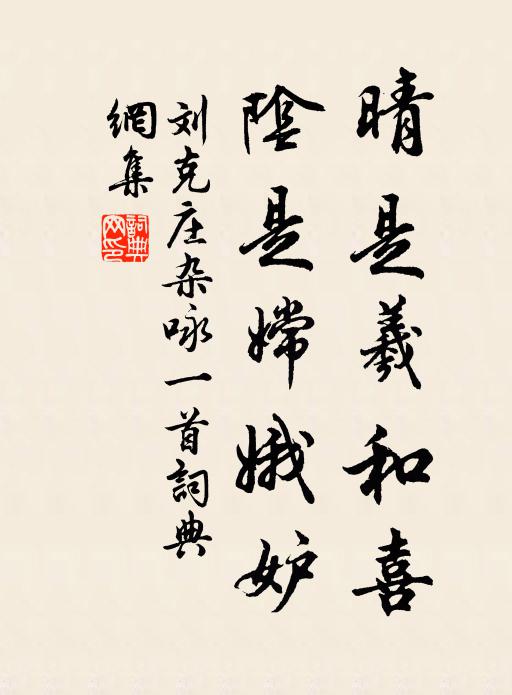 晴是羲和喜
陰是嫦娥妒
刘克庄杂咏一首詞典
網集
詞典
网印